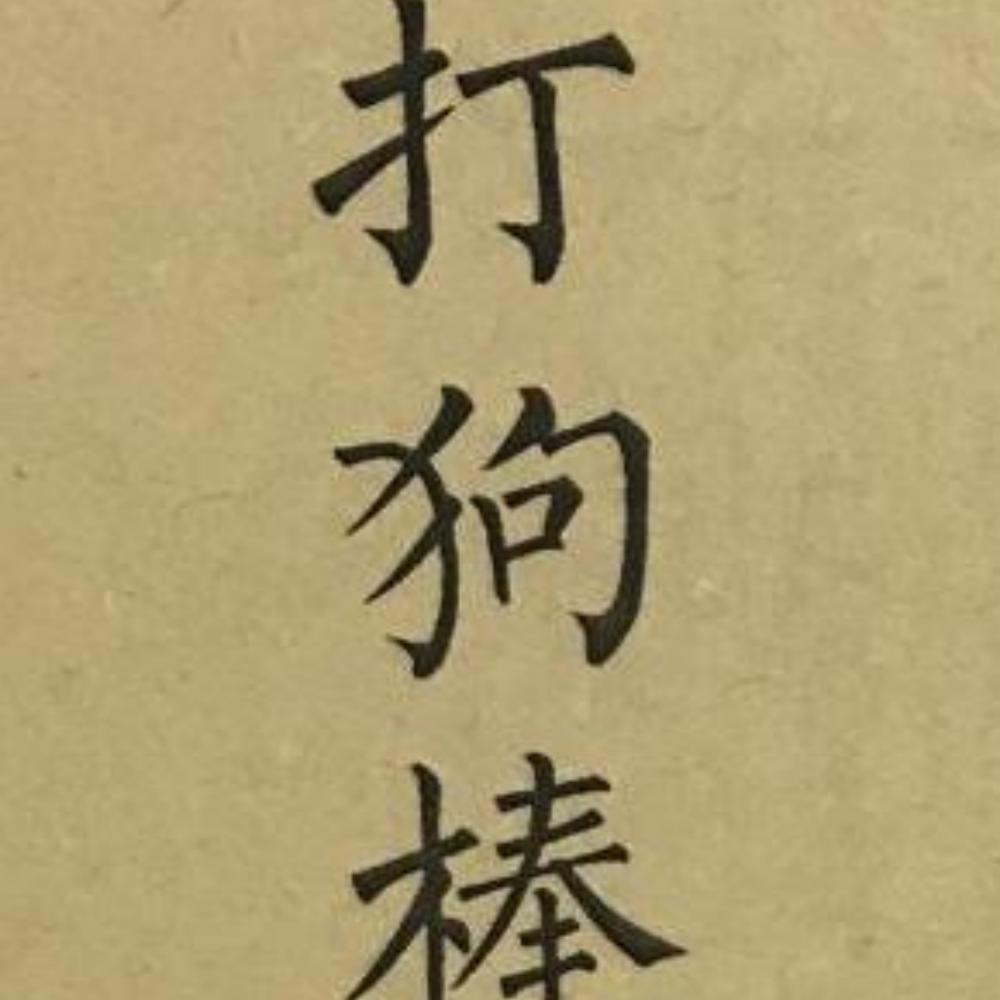 打狗棒